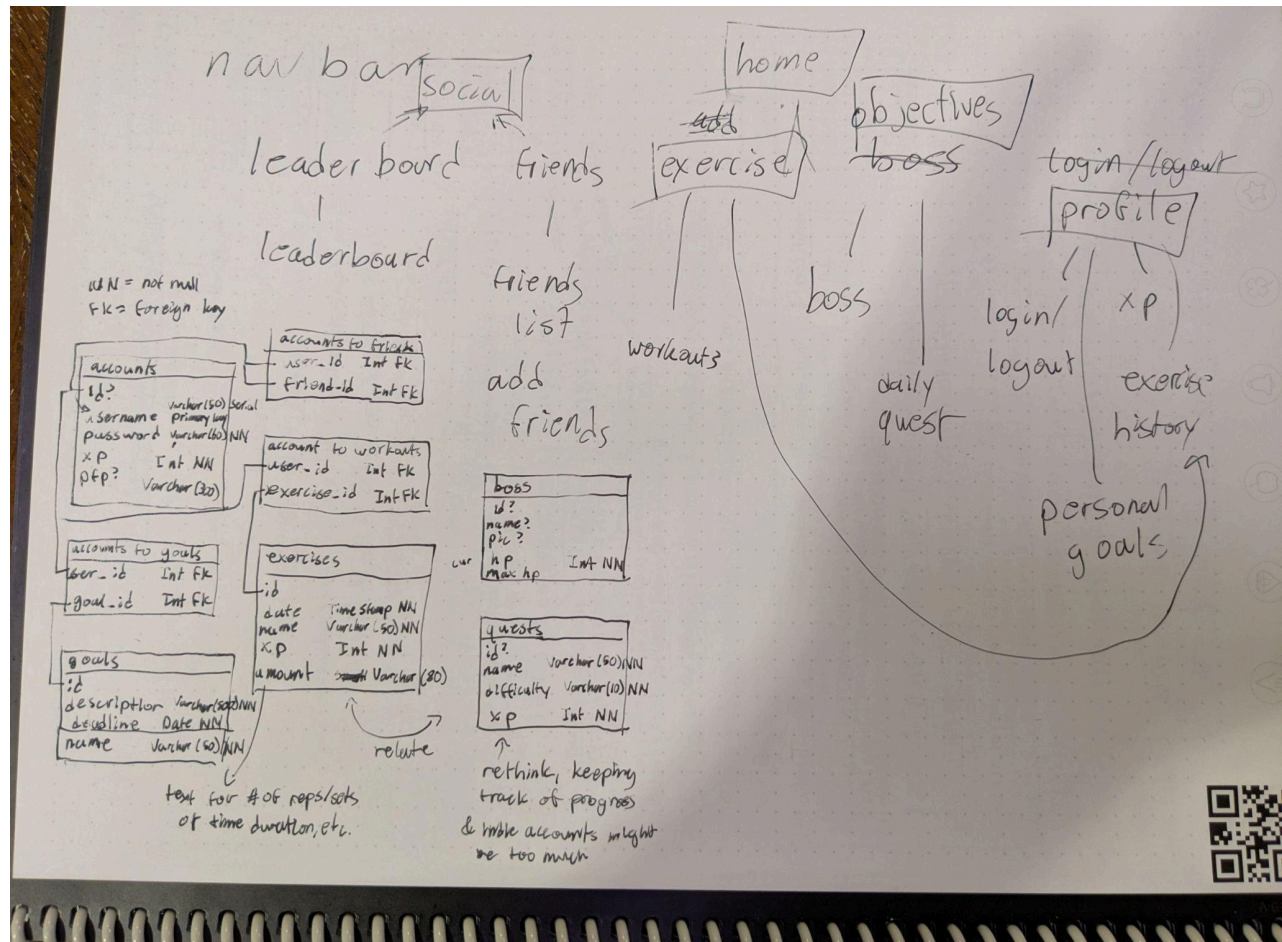 nav bar
social
home
add
exercise
objectives
boss
login/logout
profile
leader board
friends
leaderboard
friends
list
add
friends
workouts
boss
daily
quest
login/
logout
xp
exercise
history
personal
goals
NN = not null
FK = foreign key
accounts
id?
varchar(50) serial
username primary key
password varchar(60) NN
xp Int NN
pfp? Varchar(300)
accounts to friends
user_id Int FK
friend_id Int FK
account to workouts
user_id Int FK
exercise_id Int FK
accounts to goals
user_id Int FK
goal_id Int FK
goals
id
description Varchar(500) NN
deadline Date NN
name Varchar(50) NN
exercises
id
date Timestamp NN
name Varchar(50) NN
xp Int NN
amount Varchar(80)
text for # of reps/sets
or time duration, etc.
relate
boss
id?
name?
pic?
cur hp Int NN
max hp
quests
id?
name Varchar(50) NN
difficulty Varchar(10) NN
xp Int NN
rethink, keeping
track of progress
& accounts might
be too much